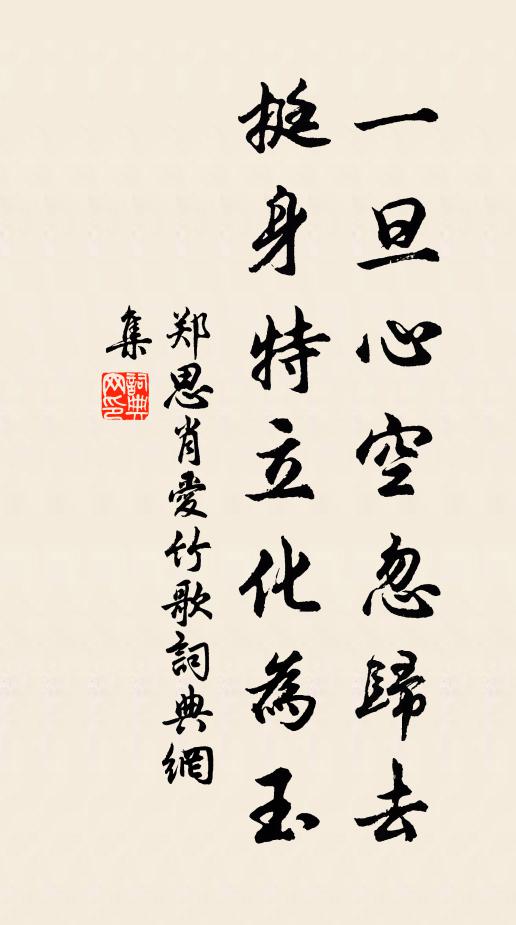 一旦心空忽歸去
挺身特立化為玉
郑思肖愛竹歌詞典網
集
詞典
网印